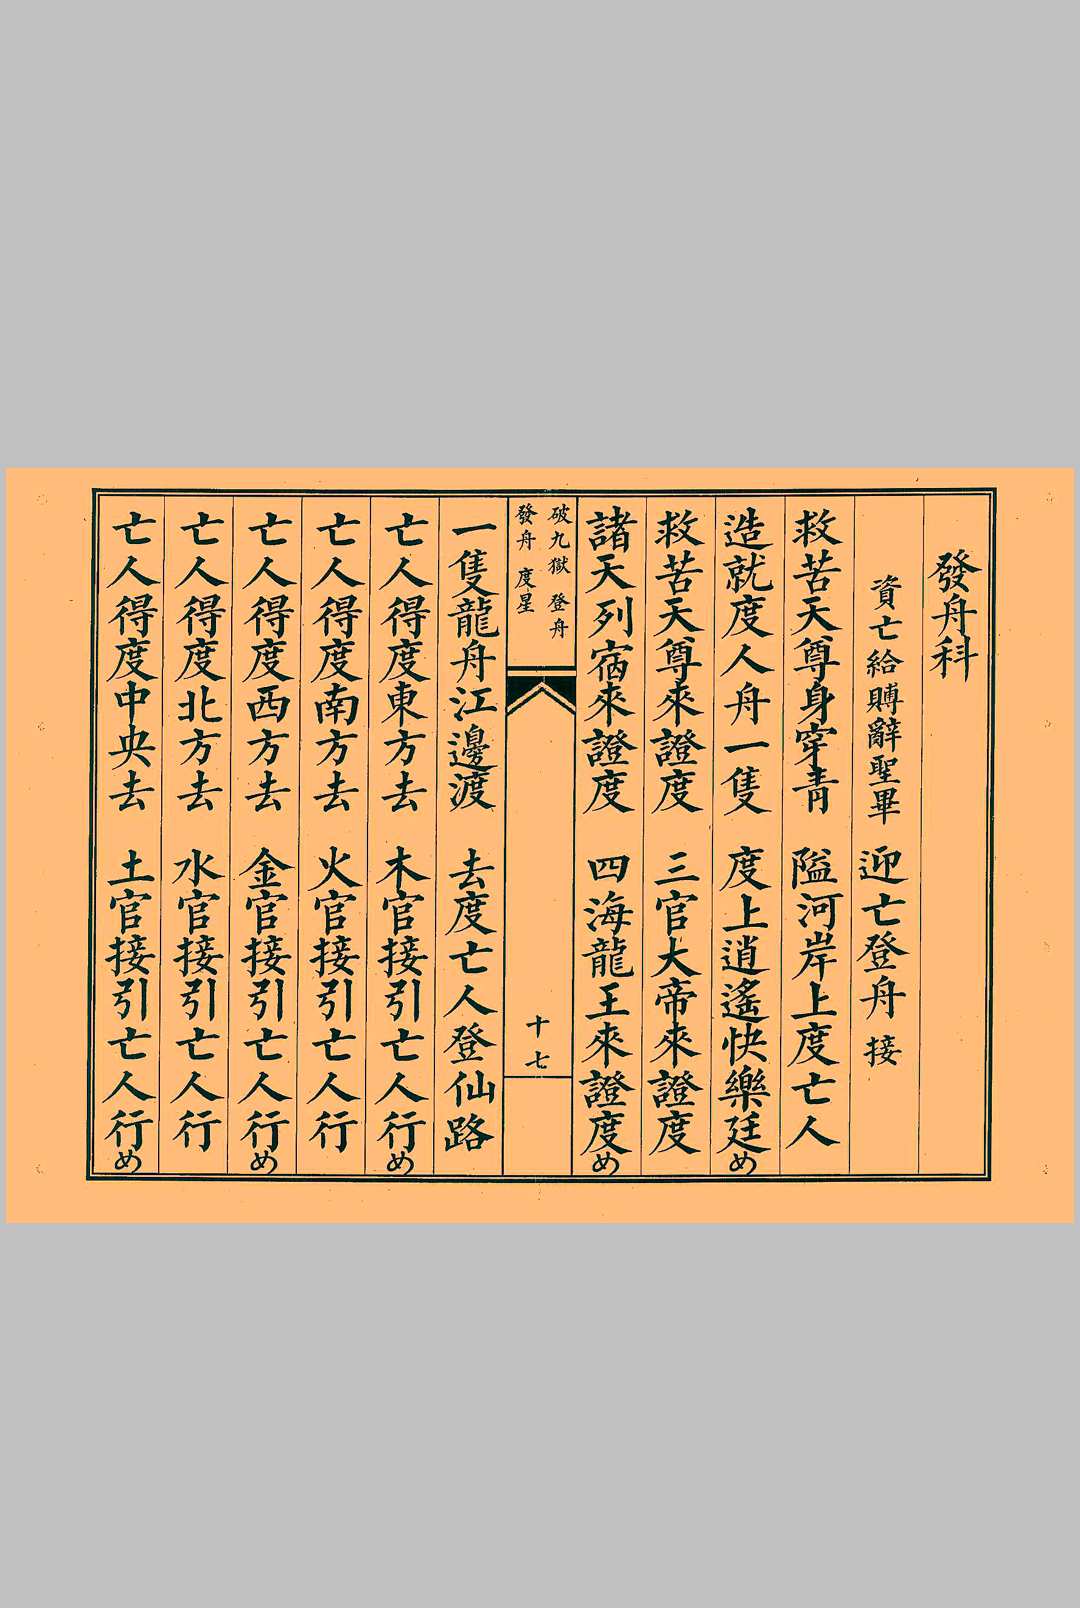 發舟科
資亡給賻辭聖畢 迎亡登舟 接
救苦天尊身穿青 隘河岸上度亡人
造就度人舟一隻 度上逍遙快樂廷め
救苦天尊來證度 三官大帝來證度
諸天列宿來證度 四海龍王來證度め
破九獄 登舟
發舟 度星
十七
一隻龍舟江邊渡 去度亡人登仙路
亡人得度東方去 木官接引亡人行め
亡人得度南方去 火官接引亡人行
亡人得度西方去 金官接引亡人行め
亡人得度北方去 水官接引亡人行
亡人得度中央去 土官接引亡人行め